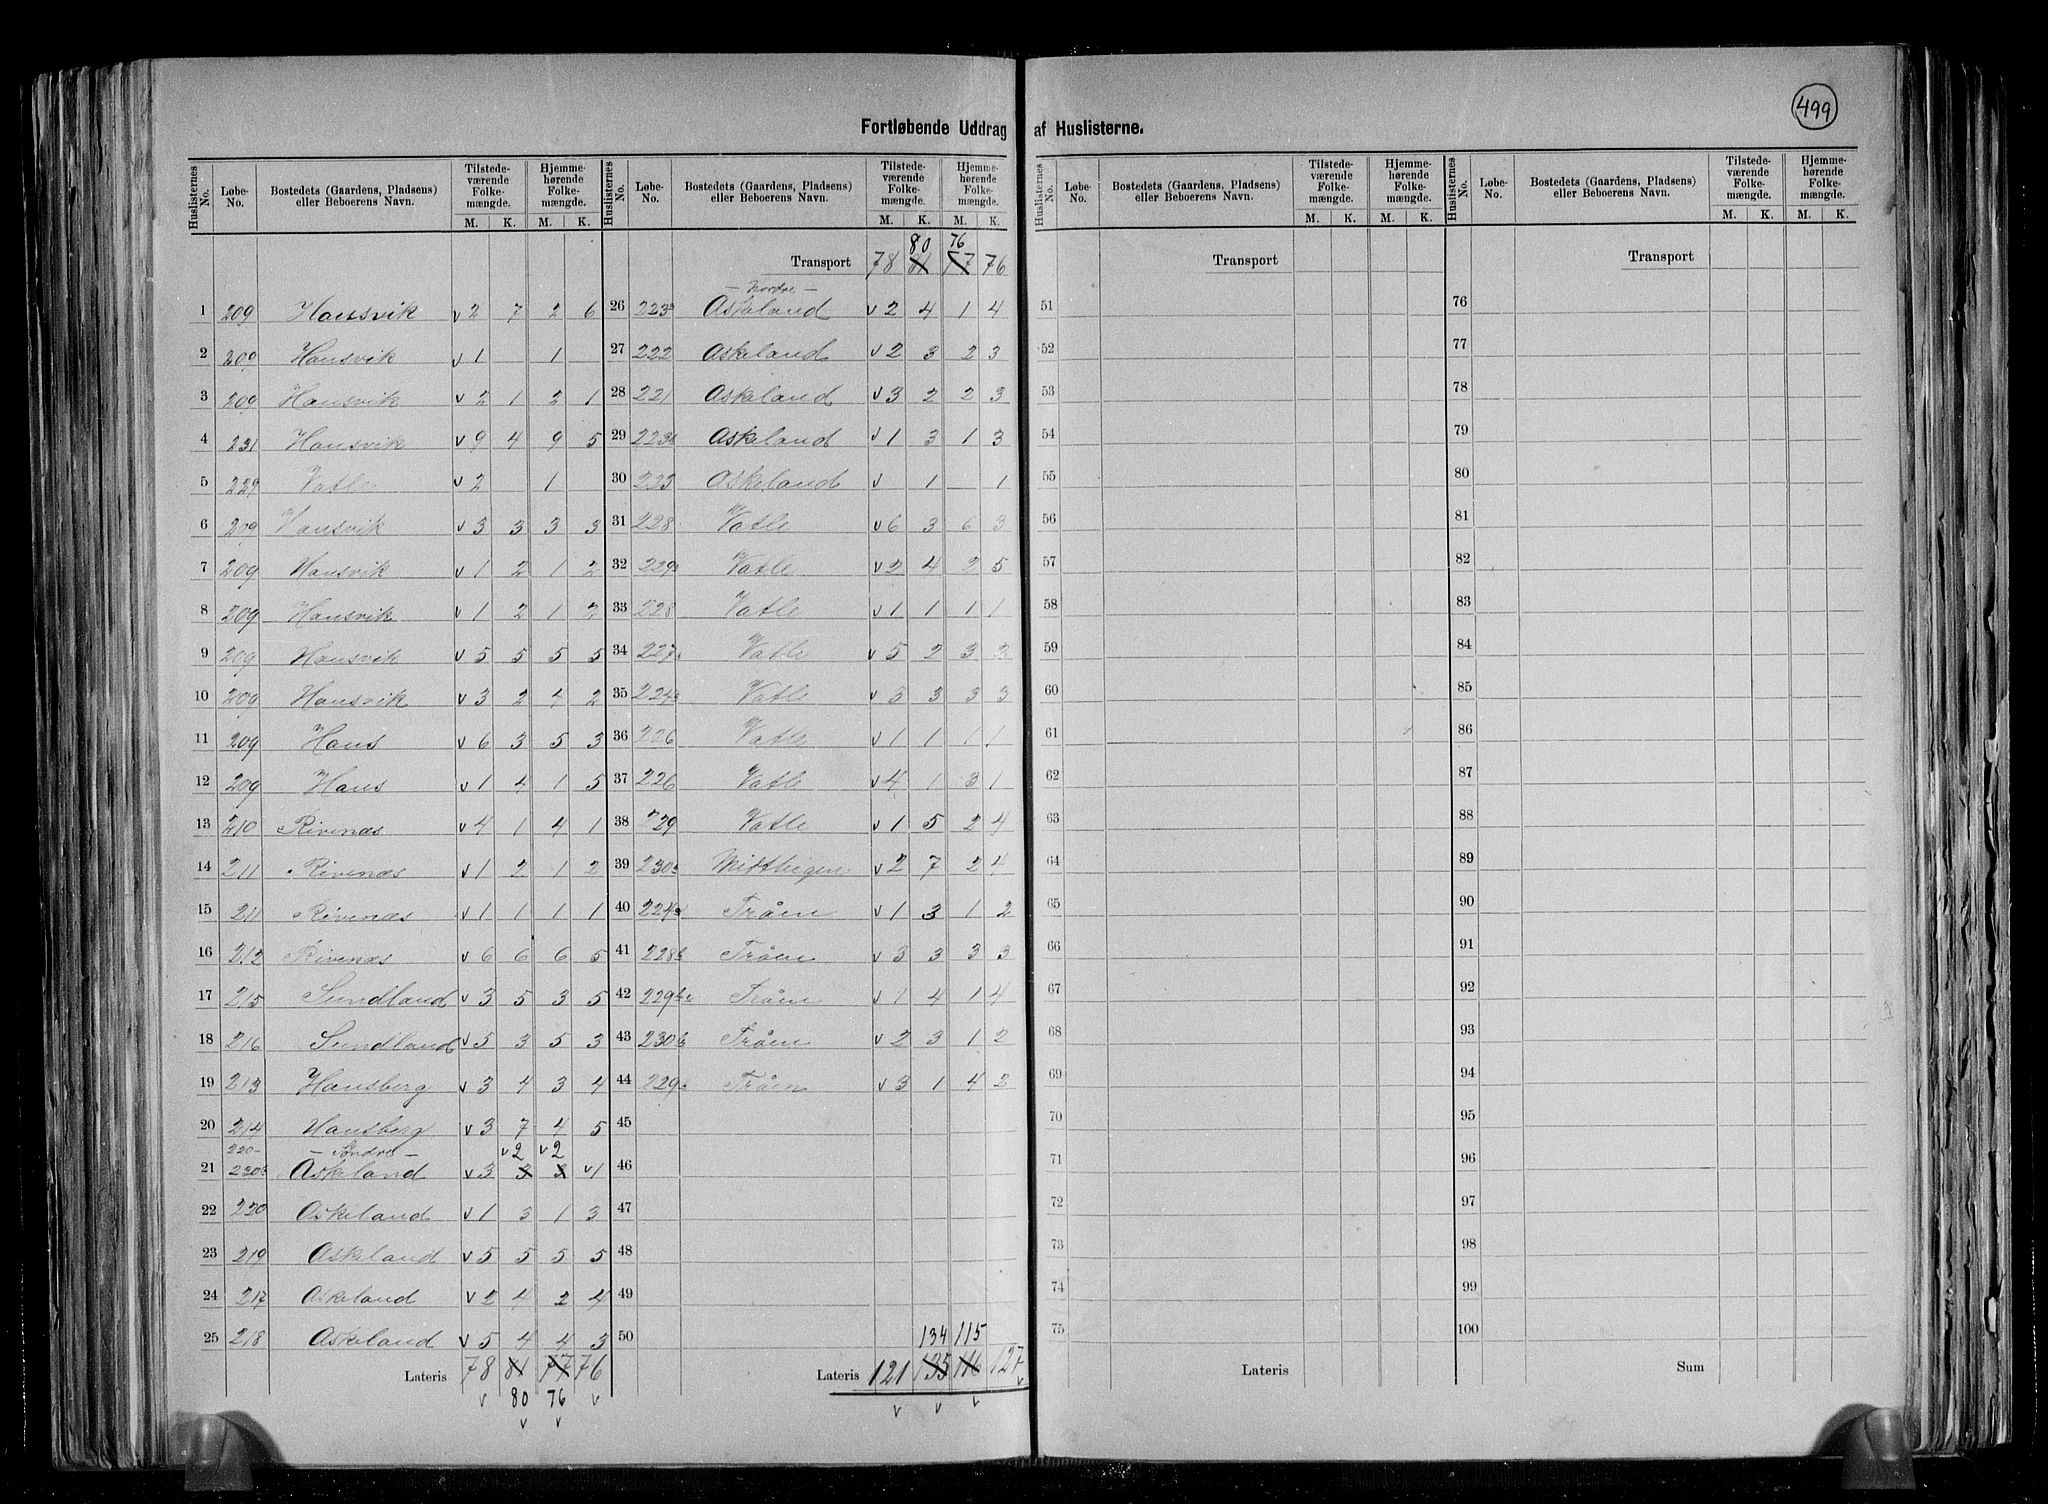 499
Fortløbende Uddrag af Huslisterne.
Huslisternes No. Løbe-No. Bostedets (Gaardens, Pladsens) eller Beboerens Navn. Tilstedeværende Folkemængde. M. K. Hjemmehørende Folkemængde. M. K.
1 209 Hansvik v 2 7 2 6
2 209 Hansvik v 1 1
3 209 Hansvik v 2 1 2 1
4 231 Hansvik v 9 4 9 5
5 229 Vatle v 2 1
6 209 Hansvik v 3 3 3 3
7 209 Hansvik v 1 2 1 2
8 209 Hansvik v 1 2 1 2
9 209 Hansvik v 5 5 5 5
10 209 Hansvik v 3 2 4 2
11 209 Hans v 6 3 5 3
12 209 Hans v 1 4 1 5
13 210 Rivenæs v 4 1 4 1
14 211 Rivenæs v 1 2 1 2
15 211 Rivenæs v 1 1 1 1
16 212 Rivenæs v 6 6 6 5
17 215 Sundland v 3 5 3 5
18 216 Sundland v 5 3 5 3
19 213 Hansberg v 3 4 3 4
20 214 Hansberg v 3 7 4 5
220- – Søndre – v 2 v 2
21 230b Askeland v 3 3 3 v 1
22 220 Askeland v 1 3 1 3
23 219 Askeland v 5 5 5 5
24 217 Askeland v 2 4 2 4
25 218 Askeland v 5 4 4 3
Lateris 78 81 77 76
v 80 76 v
v v
Huslisternes No. Løbe-No. Bostedets (Gaardens, Pladsens) eller Beboerens Navn. Tilstedeværende Folkemængde. M. K. Hjemmehørende Folkemængde. M. K.
80 76
Transport 78 81 77 76
– Nordre –
26 Askeland v 2 4 1 4
27 222 Askeland v 2 3 2 3
28 221 Askeland v 3 2 2 3
29 Askeland v 1 3 1 3
30 223 Askeland v 1 1
31 228 Vatle v 6 3 6 3
32 Vatle v 2 4 2 5
33 228 Vatle v 1 1 1 1
34 Vatle v 5 2 3 3
35 Vatle v 3 3 3 3
36 226 Vatle v 1 1 1 1
37 226 Vatle v 4 1 3 1
38 229 Vatle v 1 5 2 4
39 v 2 7 2 4
40 Tråen v 1 3 1 2
41 228b Tråen v 3 3 3 3
42 Tråen v 1 4 1 4
43 230b Tråen v 2 3 1 2
44 Tråen v 3 1 4 2
45
46
47
48
49
50
134 115
Lateris 121 135 116 127
v v v v
Huslisternes No. Løbe-No. Bostedets (Gaardens, Pladsens) eller Beboerens Navn. Tilstedeværende Folkemængde. M. K. Hjemmehørende Folkemængde. M. K.
Transport
51
52
53
54
55
56
57
58
59
60
61
62
63
64
65
66
67
68
69
70
71
72
73
74
75
Lateris
Huslisternes No. Løbe-No. Bostedets (Gaardens, Pladsens) eller Beboerens Navn. Tilstedeværende Folkemængde. M. K. Hjemmehørende Folkemængde. M. K.
Transport
76
77
78
79
80
81
82
83
84
85
86
87
88
89
90
91
92
93
94
95
96
97
98
99
100
Sum